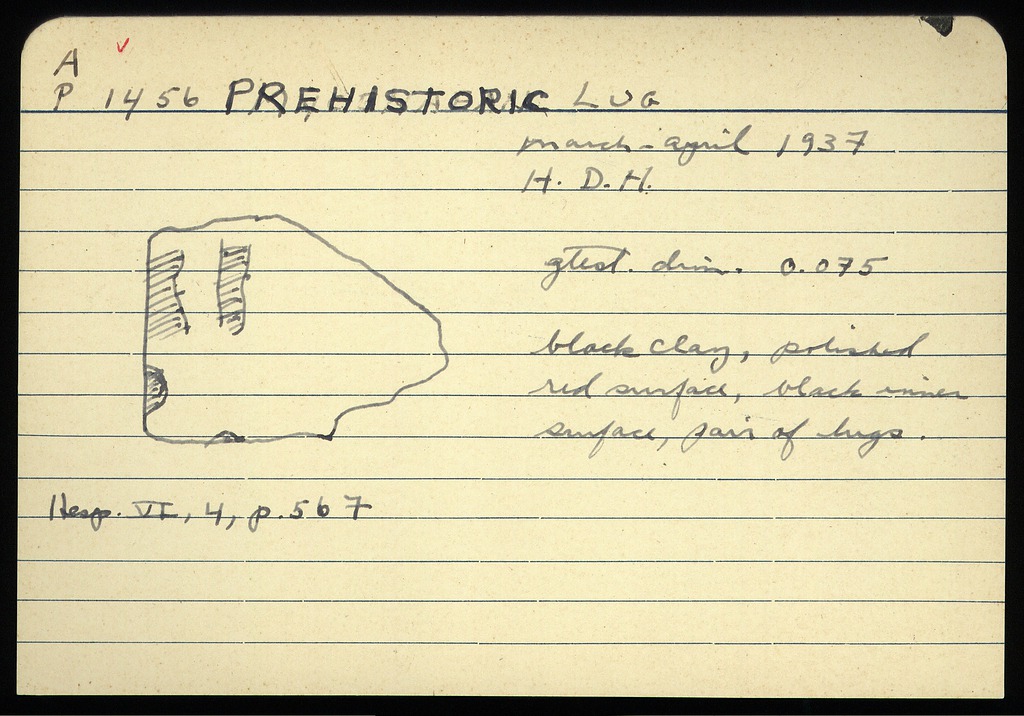 A
P 1456 PREHISTORIC LUG
march-april 1937
H. D. H.
gtest. dim. 0.075
black clay, polished
red surface, black inner
surface, pair of lugs.
Hesp. VI, 4, p. 567